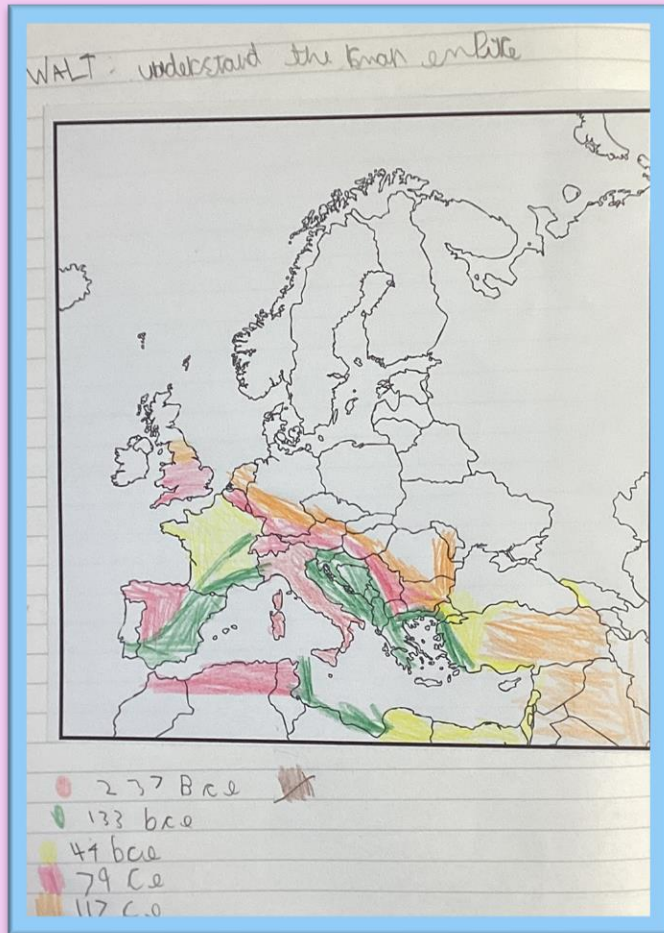 WALT: understand the roman enpire
237 Bce
133 bce
44 bce
79 Ce
117 Ce